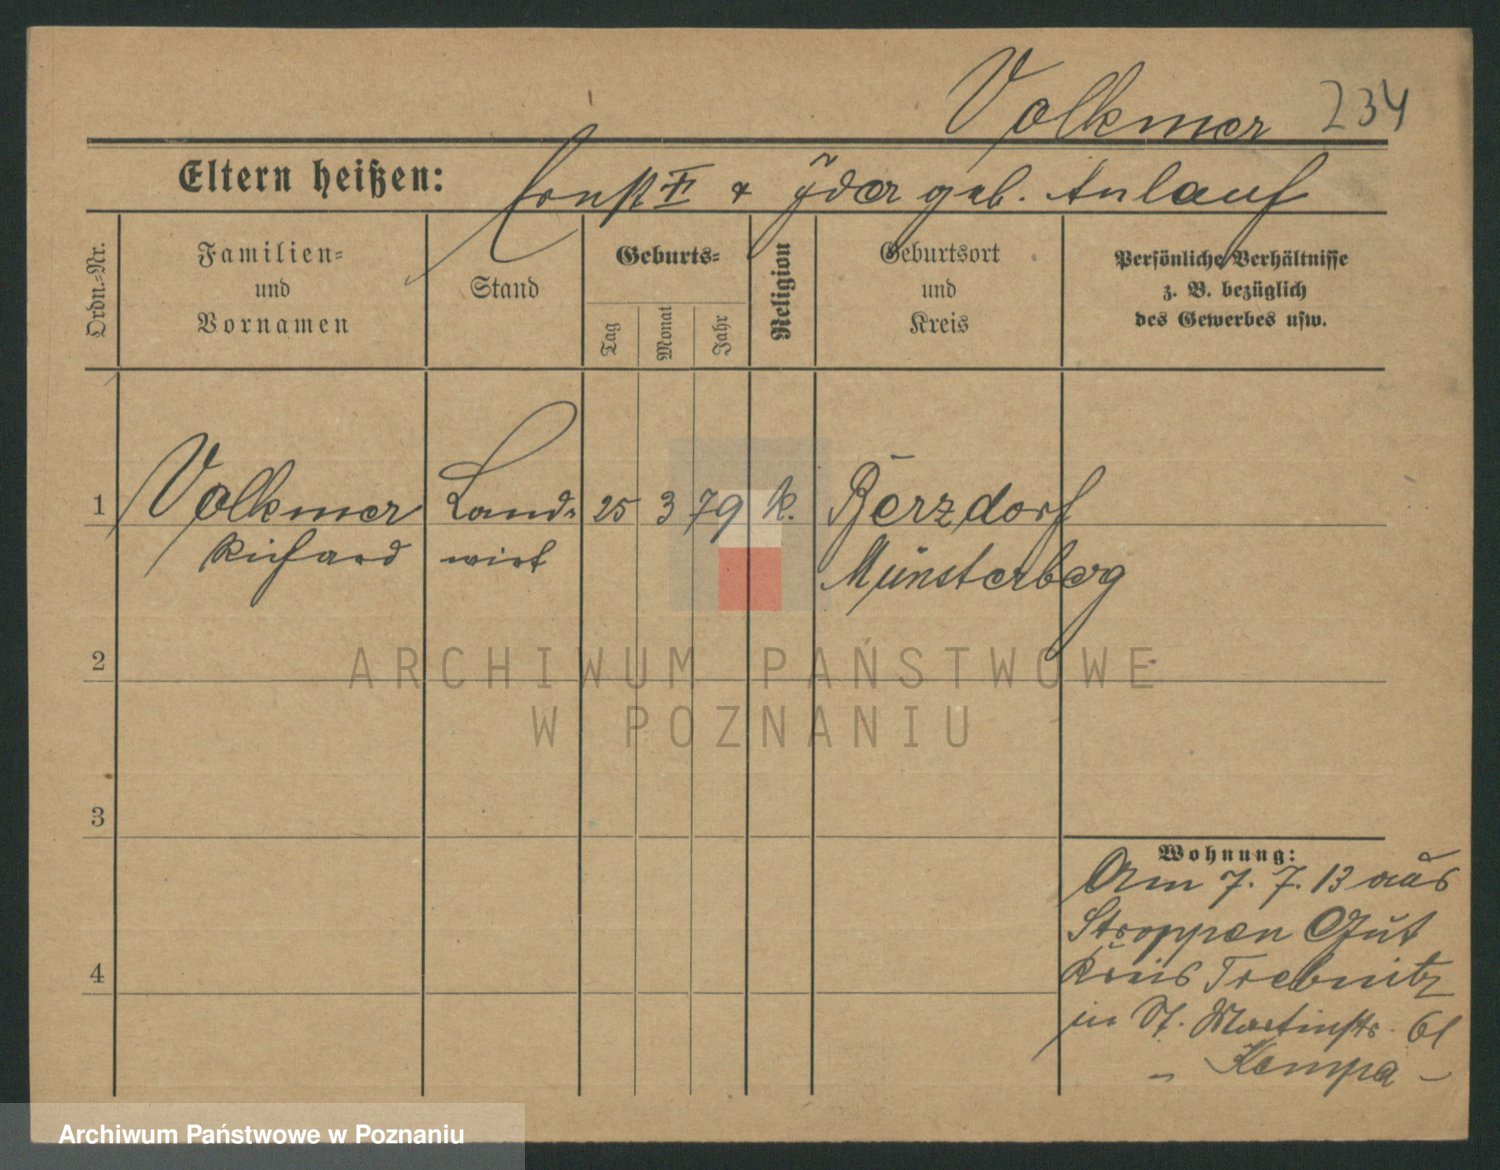 Volkmer 234
Eltern heißen: Ernst & geb. Anlauf
Ordn.-Nr.
Familien-
und
Vornamen
Stand
Geburts-
Tag
Monat
Jahr
Religion
Geburtsort
und
Kreis
Persönliche Verhältnisse
z. B. bezüglich
des Gewerbes usw.
1 Volkmer Land- 25 3 79 k. Berzdorf
Richard wirt Münsterberg
2
3
4
Wohnung:
Am 7. 7. 13 aus
Stroppen Gut
Kreis Trebnitz
in St. Martinstr. 61
- Kempa -
ARCHIWUM PAŃSTWOWE
W POZNANIU
Archiwum Państwowe w Poznaniu